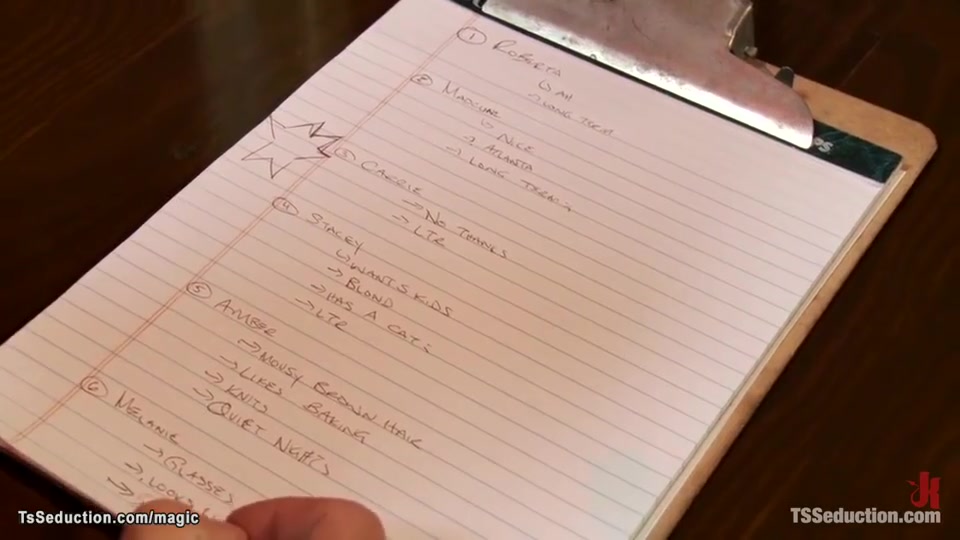 1 ROBERTA
→ AH
→ LONG TERM
2
→ NICE
→ ATLANTA
→ LONG TERM :
3 CARRIE
→ NO THANKS
→ LTR
4 STACEY
→ WANTS KIDS
→ BLOND
→ HAS A CAT :
→ LTR
5 AMBER
→ MOUSY BROWN HAIR
→ LIKES BAKING
→ KNITS
→ QUIET NIGHTS
6 MELANIE
→ GLASSES
→ LOOKS
TsSeduction.com/magic
TSSeduction.com